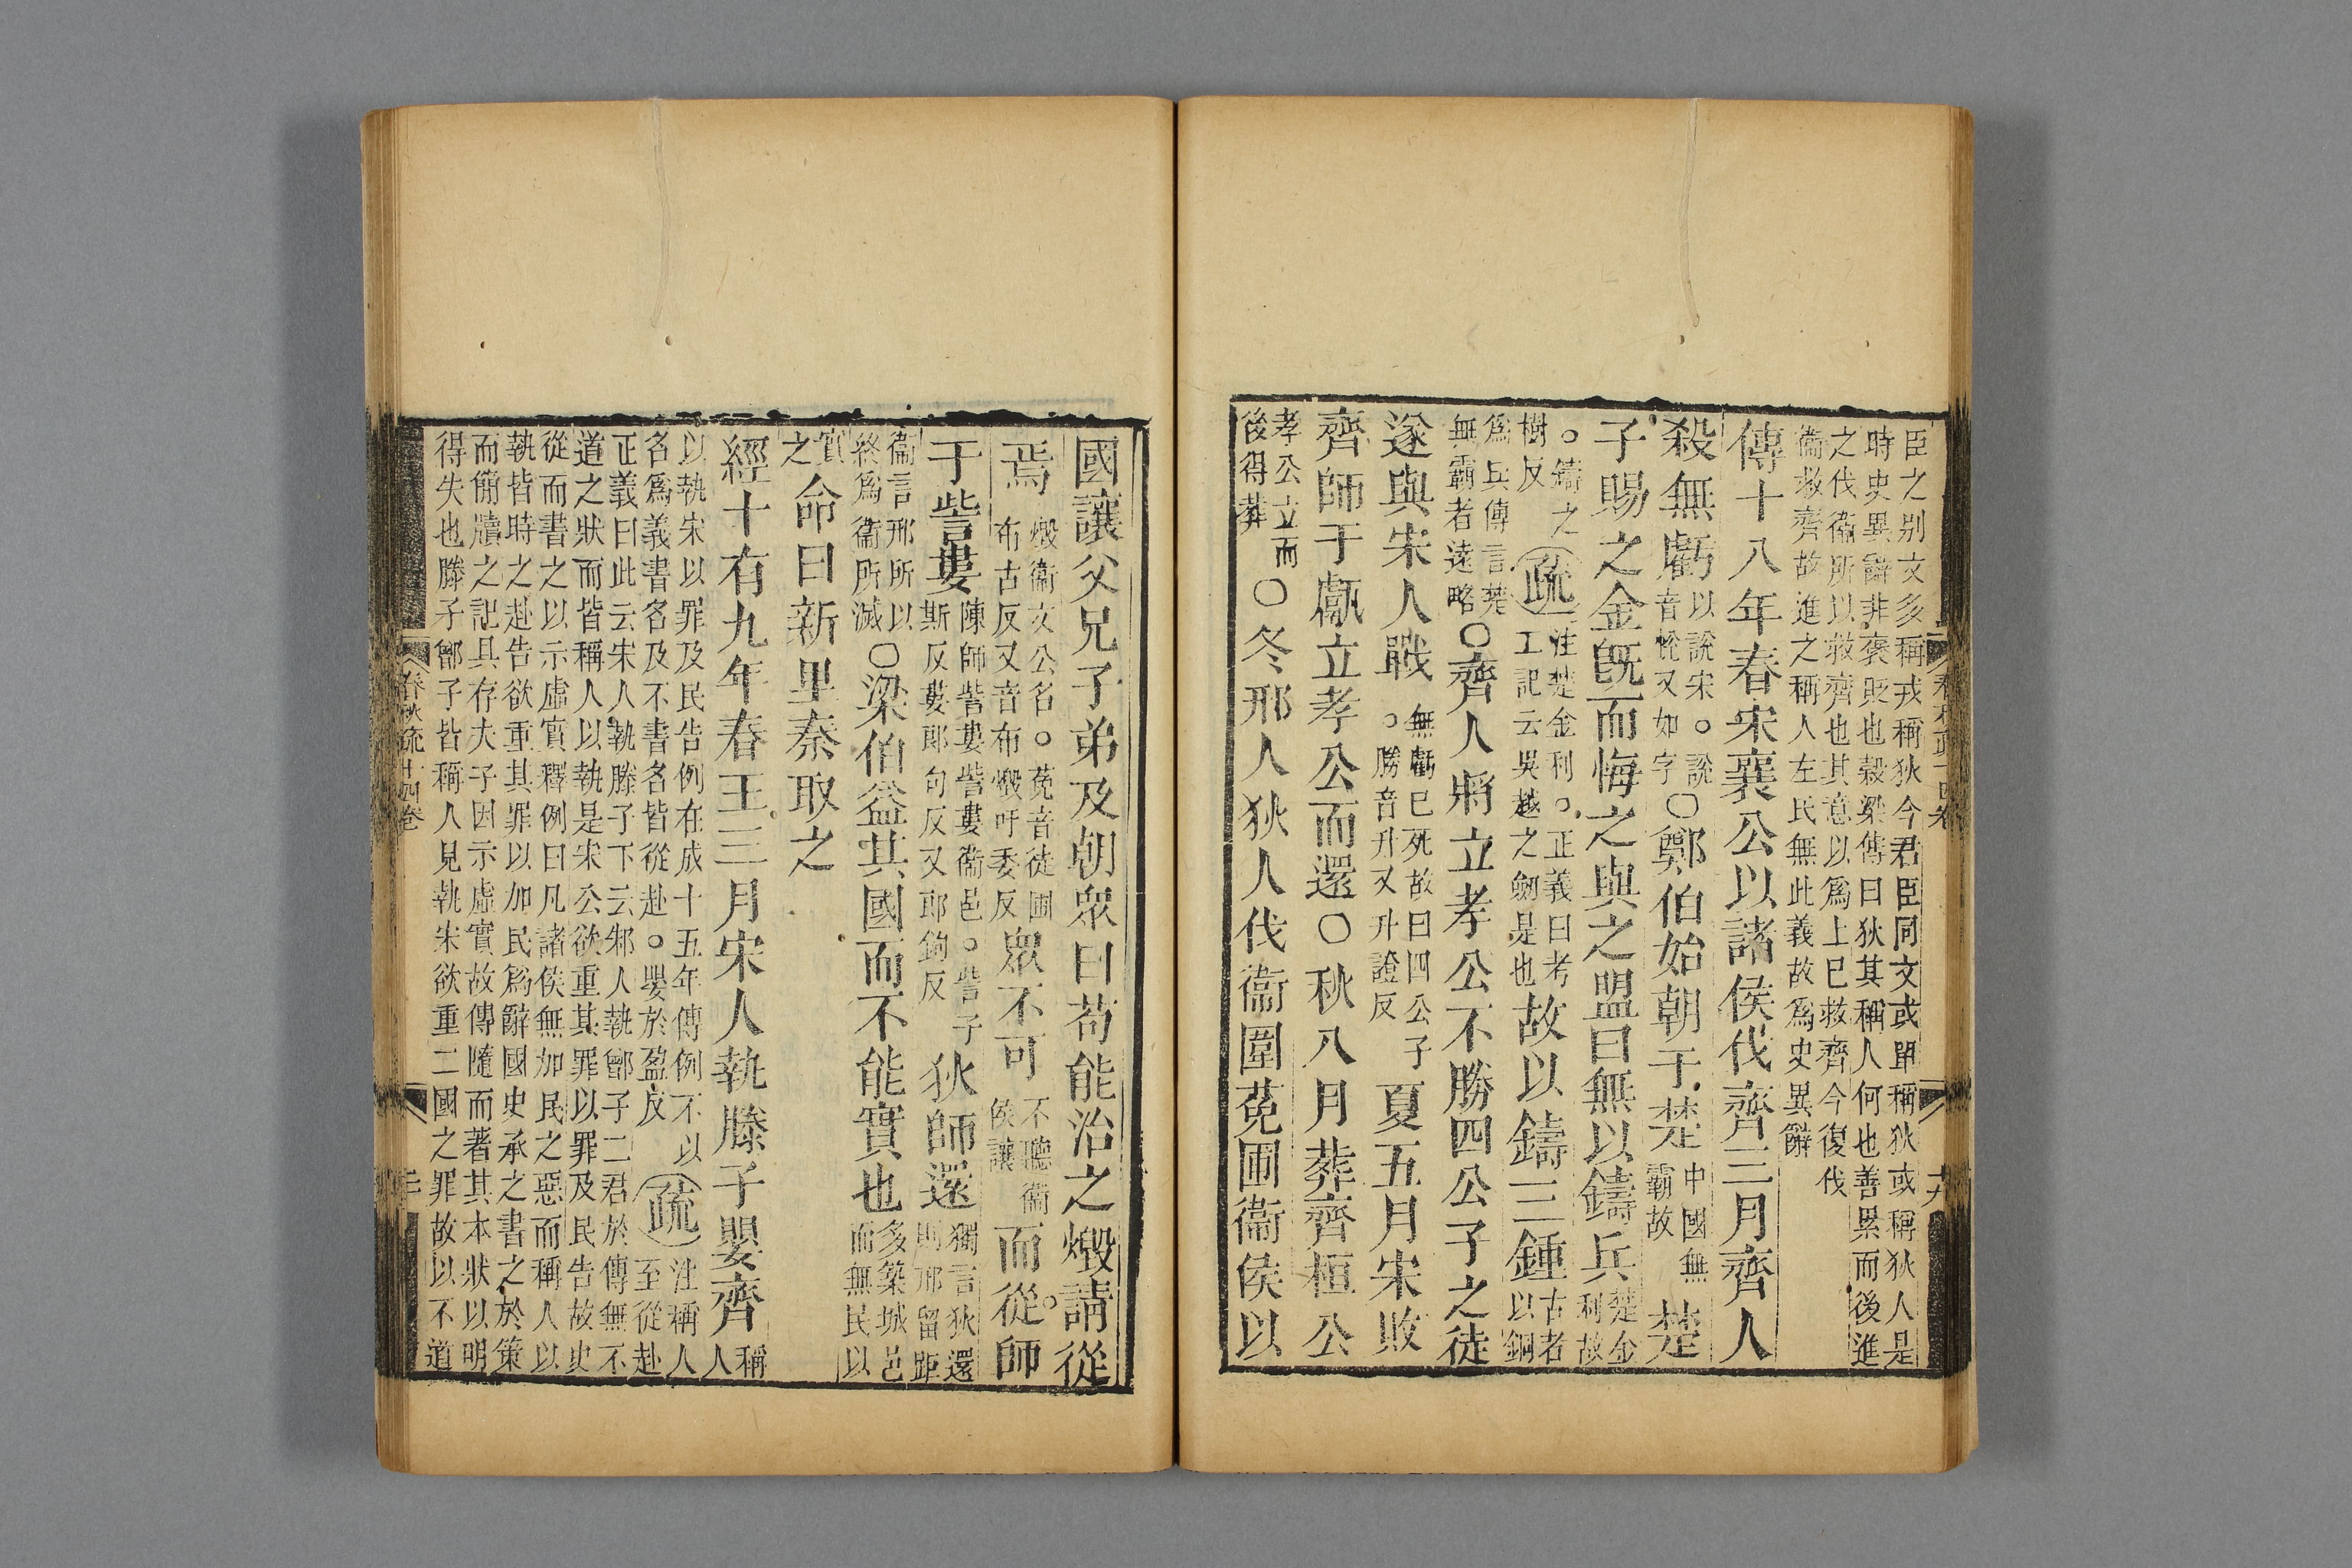 臣之别文多稱戎稱狄今君臣同文或單稱狄或稱狄人是
時史異辭非褒貶也穀梁傳曰狄其稱人何也善累而後進
之伐衞所以救齊也其意以爲上巳救齊今復伐
衞救齊故進之稱人左氏無此義故爲史異辭
傳十八年春宋襄公以諸侯伐齊三月齊人
殺無虧以說宋。說音悅又如字○鄭伯始朝于楚中國無霸故楚
子賜之金旣而悔之與之盟曰無以鑄兵楚金利故
。鑄之樹反疏注楚金利。正義曰考工記云吳越之劒是也故以鑄三鍾古者以銅
爲兵傳言楚無霸者遠略○齊人將立孝公不勝四公子之徒
遂與宋人戰無虧已死故曰四公子。勝音升又升證反夏五月宋敗
齊師于甗立孝公而還○秋八月葬齊桓公
孝公立而後得葬○冬邢人狄人伐衞圍菟圃衞侯以
春秋疏十四卷
十九
國讓父兄子弟及朝衆曰苟能治之燬請從
焉燬衞文公名。菟音徒圃布古反又音布燬吁委反衆不可不聽衞侯讓而從師
于訾婁陳師訾婁訾婁衞邑。訾子斯反婁郎句反又郎鉤反狄師還獨言狄還則邢留距
衞言邢所以終爲衞所滅○梁伯益其國而不能實也多築城邑而無民以
實之命曰新里秦取之
經十有九年春王三月宋人執滕子嬰齊稱人
以執宋以罪及民告例在成十五年傳例不以
名爲義書名及不書名皆從赴。嬰於盈反疏注稱人至從赴
正義曰此云宋人執滕子下云邾人執鄫子二君於傳無不
道之狀而皆稱人以執是宋公欲重其罪以罪及民告故史
從而書之以示虛實釋例曰凡諸侯無加民之惡而稱人以
執皆時之赴告欲重其罪以加民爲辭國史承之書之於策
而簡牘之記具存夫子因示虛實故傳隨而著其本狀以明
得失也滕子鄫子皆稱人見執宋欲重二國之罪故以不道
春秋疏十四卷
二十